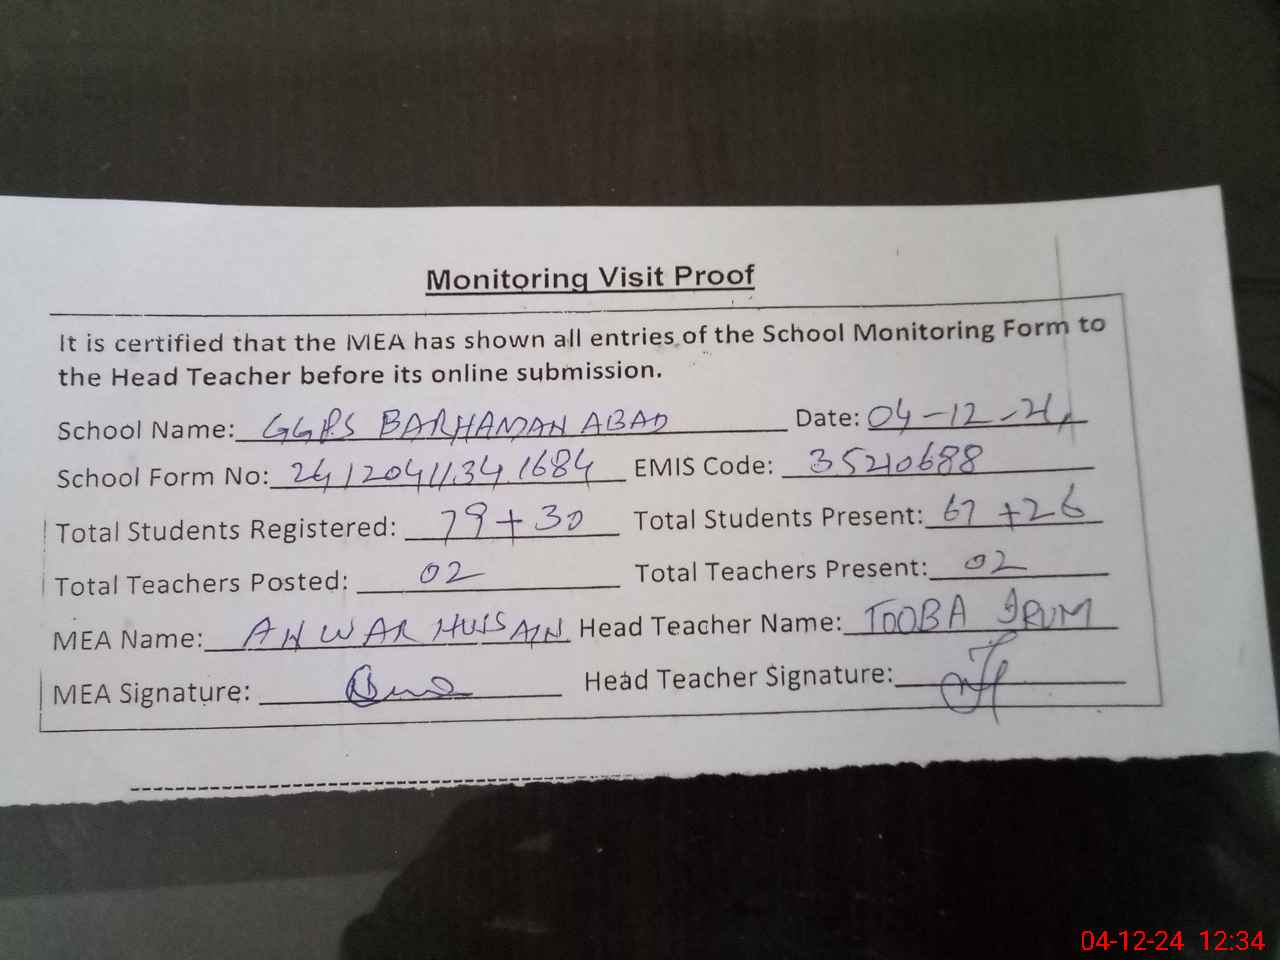 Monitoring Visit Proof
It is certified that the MEA has shown all entries of the School Monitoring Form to
the Head Teacher before its online submission.
School Name: GGPS BARHAMAN ABAD Date: 04-12-24
School Form No: 24120411341684 EMIS Code: 35210688
Total Students Registered: 79+30 Total Students Present: 67+26
Total Teachers Posted: 02 Total Teachers Present: 02
MEA Name: ANWAR HUSSAIN Head Teacher Name: TOOBA IRUM
MEA Signature: Head Teacher Signature:
04-12-24 12:34